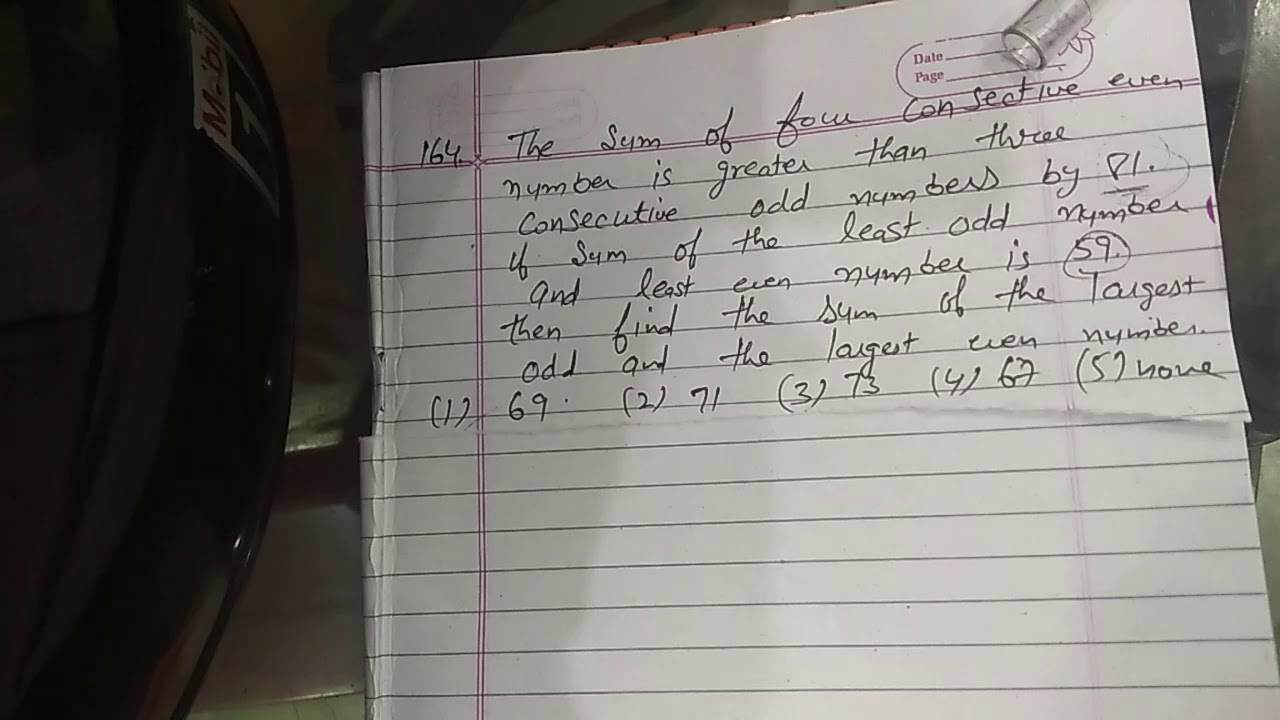 Mobil 1
Date
Page
164. The Sum of four Consective even
number is greater than three
Consecutive odd numbers by 81.
if Sum of the least odd number
and least even number is 59.
then find the sum of the largest
odd and the largest even number.
(1) 69. (2) 71 (3) 73 (4) 67 (5) none